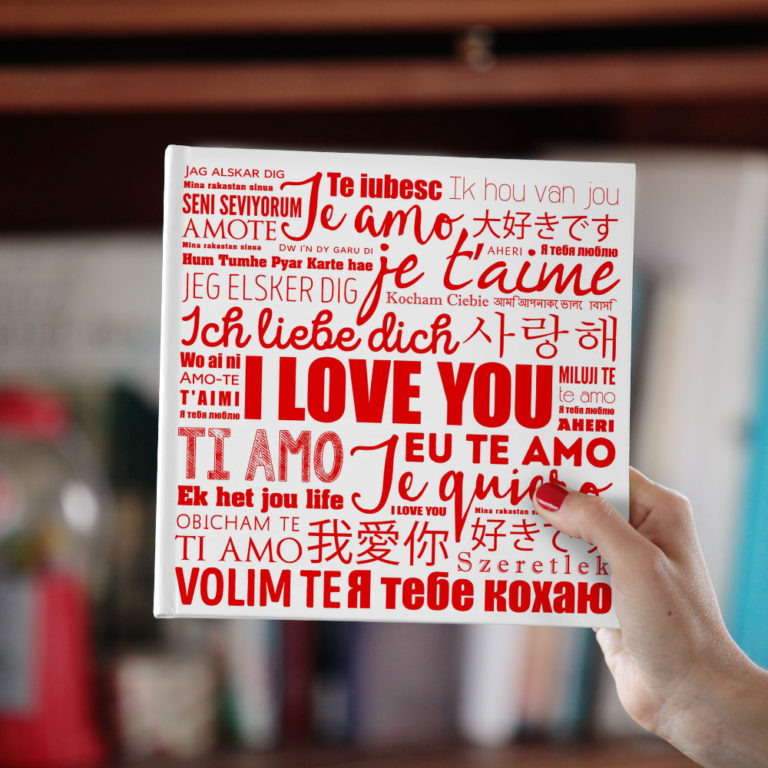 JAG ALSKAR DIG
Mina rakastan sinua
SENI SEVIYORUM
AMOTE
Mina rakastan sinua
Te amo
Te iubesc
Ik hou van jou
大好きです
DW I'N DY GARU DI
AHERI
Я тебя люблю
Hum Tumhe Pyar Karte hae
je t'aime
JEG ELSKER DIG
Kocham Ciebie
Ich liebe dich
사랑해
Wo ai ni
AMO-TE
T'AIMI
Я тебя люблю
I LOVE YOU
MILUJI TE
te amo
Я тебя люблю
AHERI
TI AMO
EU TE AMO
Te quiero
Ek het jou life
I LOVE YOU
Mina rakastan
OBICHAM TE
TI AMO
我愛你
好きで
Szeretlek
VOLIM TE
Я тебе кохаю